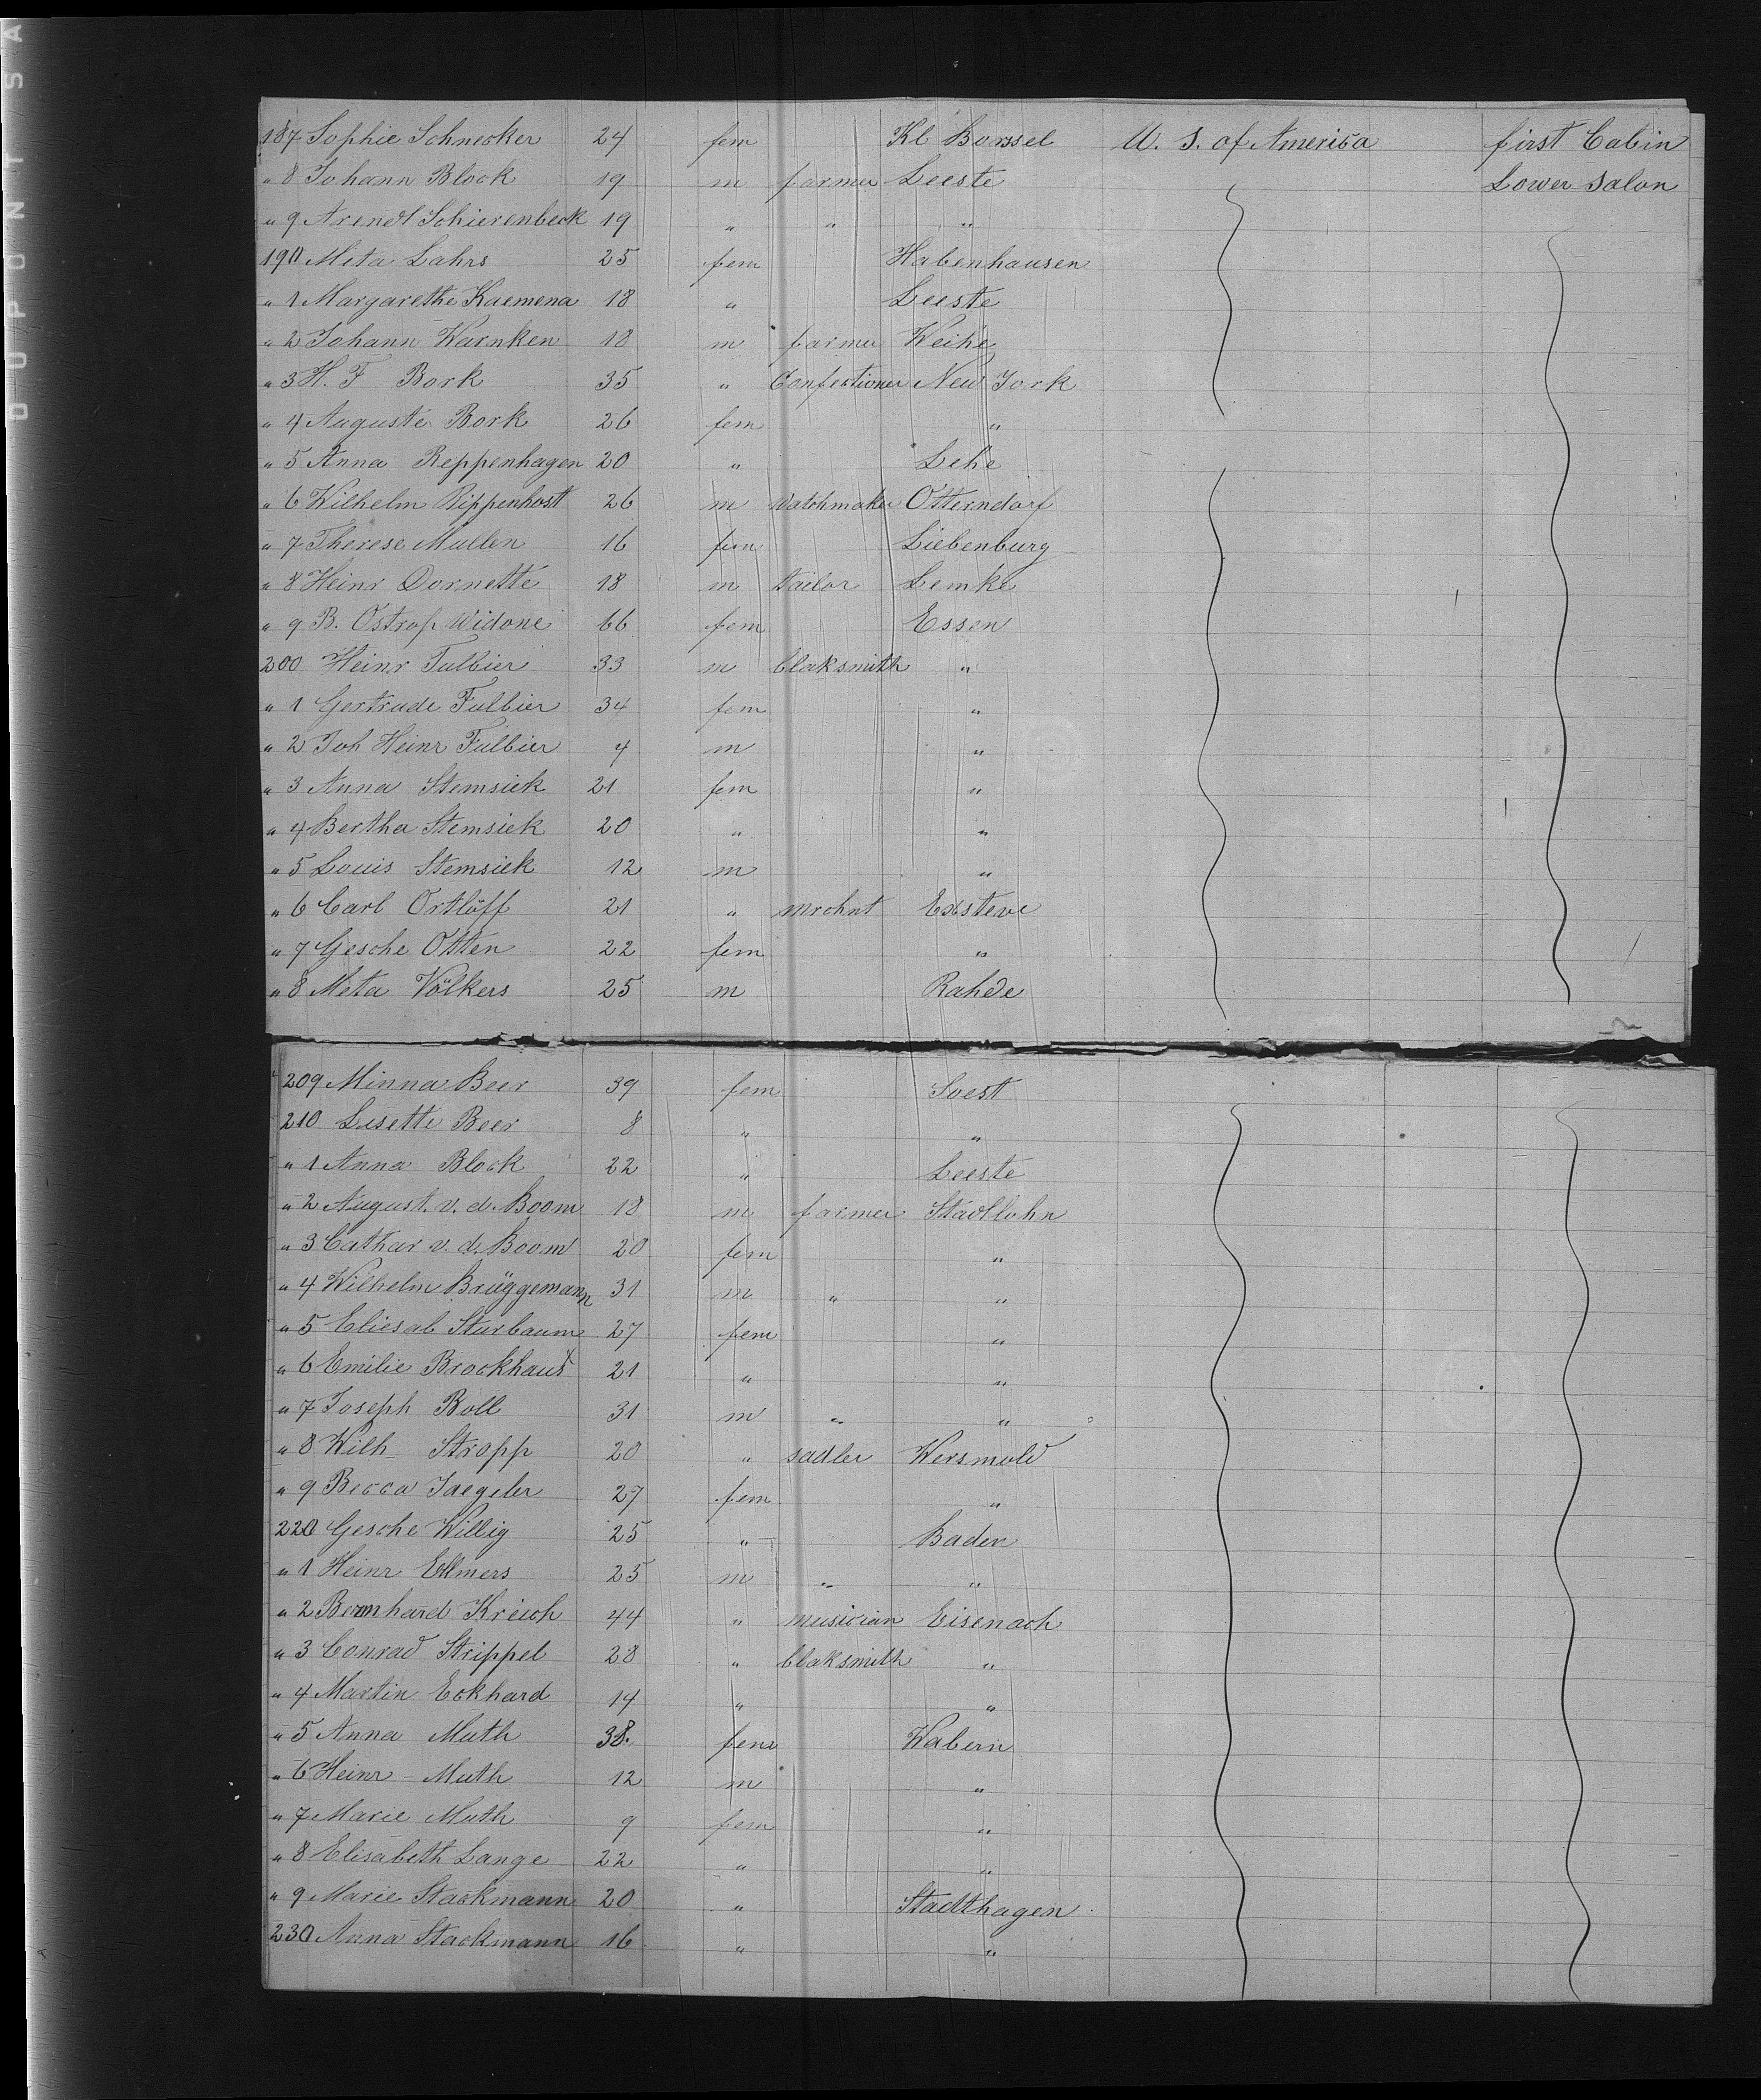 187 Sophie Schnecker 24 fem Kl Borssel U. S. of America first Cabin
" 8 Johann Block 19 m farmer Leeste Lower Salon
" 9 Arendt Schierenbeck 19 " " "
190 Meta Lahrs 25 fem Habenhausen
" 1 Margarethe Kaemena 18 " Leeste
" 2 Johann Warnken 18 m farmer Weihe
" 3 H. F Bork 35 " Confectioner New York
" 4 Auguste Bork 26 fem "
" 5 Anna Reppenhagen 20 " Lehe
" 6 Wilhelm Rippenhost 26 m Watchmaker Otterndorf
" 7 Therese Mullen 16 fem Liebenburg
" 8 Heinr Dornette 18 m tailor Lemke
" 9 B. Ostrop Widone 66 fem Essen
200 Heinr Fulbier 33 m blaksmith "
" 1 Gertrude Fulbier 34 fem "
" 2 Joh Heinr Fulbier 4 m "
" 3 Anna Stemsiek 21 fem "
" 4 Bertha Stemsiek 20 " "
" 5 Louis Stemsiek 12 m "
" 6 Carl Ortlöff 21 " mrchnt
" 7 Gesche Otten 22 fem "
" 8 Meta Völkers 25 m Rahde
209 Minna Beer 39 fem Soest
210 Lisette Beer 8 " "
" 1 Anna Block 22 " Leeste
" 2 August. v. d. Boom 18 m farmer Stadtlohn
" 3 Cathar v. d. Boom 20 fem "
" 4 Wilhelm Brüggemann 31 m " "
" 5 Eliesab Sturbaum 27 fem "
" 6 Emilie Brockhaus 21 " "
" 7 Joseph Boll 31 m " "
" 8 Wilh Stropp 20 " sadler Wersmold
" 9 Becca Jaegeler 27 fem "
220 Gesche Willig 25 " Baden
" 1 Heinr Ellmers 25 m " "
" 2 Bernhard Kreich 44 " musician Eisenach
" 3 Conrad Strippel 28 " blaksmith "
" 4 Martin Eckhard 14 " "
" 5 Anna Muth 38. fem Wabern
" 6 Heinr Muth 12 m "
" 7 Marie Muth 9 fem "
" 8 Elisabeth Lange 22 " "
" 9 Marie Stackmann 20 " Stadthagen
230 Anna Stackmann 16 " "
DUPONT SA